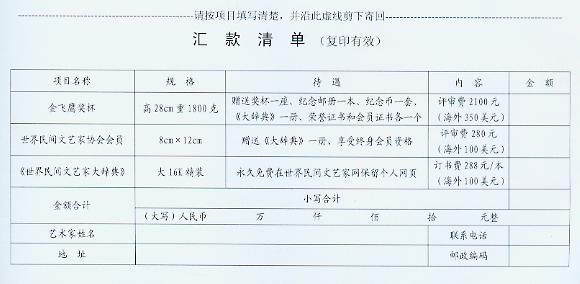 请按项目填写清楚，并沿此虚线剪下寄回
汇款清单（复印有效）
项目名称 规格 待遇 内容 金额
金飞鹰奖杯 高28cm重1800克 赠送奖杯一座、纪念邮册一本、纪念币一套、 评审费2100元
《大辞典》一册、荣誉证书和会员证书各一个 （海外350美元）
世界民间文艺家协会会员 8cm×12cm 赠送《大辞典》一册、享受终身会员资格 评审费280元
（海外100美元）
《世界民间文艺家大辞典》 大16K精装 永久免费在世界民间文艺家网保留个人网页 订书费288元/本
（海外100美元）
金额合计 小写合计
（大写）人民币 万 仟 佰 拾 元整
艺术家姓名 联系电话
地址 邮政编码